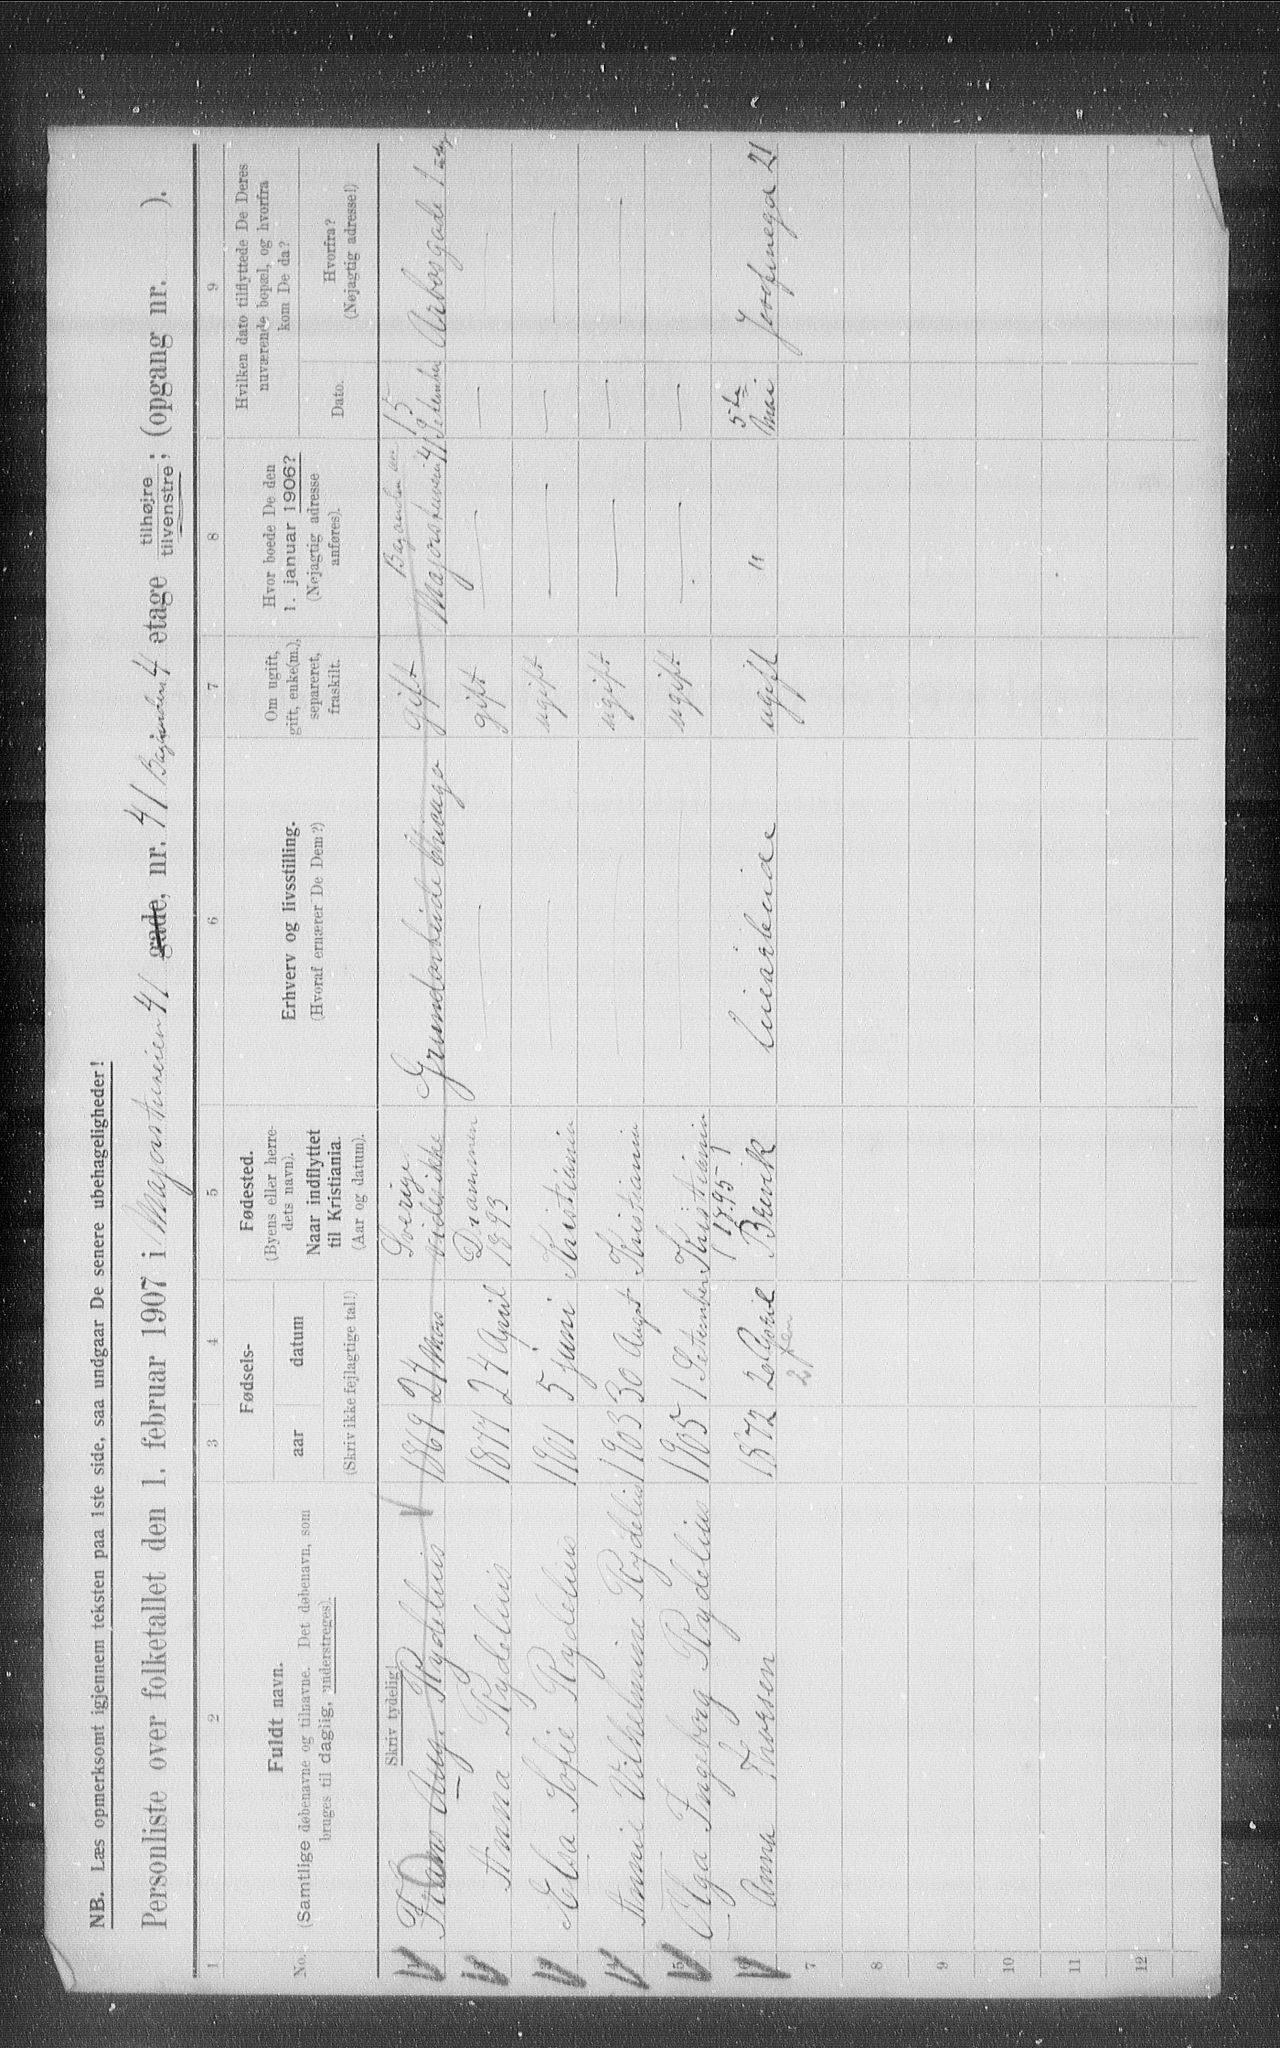 NB. Læs opmerksomt igjennem teksten paa 1ste side, saa undgaar De senere ubehageligheder!
Personliste over folketallet den 1. februar 1907 i Majorstuveien 41 gade, nr. 41 Bagaarden 4 etage tilhøjre tilvenstre; (opgang nr. ).
1 2 3 4 5 6 7 8 9
No.
Fuldt navn.
(Samtlige døbenavne og tilnavne. Det døbenavn, som
bruges til daglig, understreges).
Fødsels-
aar datum
(Skriv ikke fejlagtige tal!)
Fødested.
(Byens eller herre-
dets navn).
Naar indflyttet
til Kristiania.
(Aar og datum).
Erhverv og livsstilling.
(Hvoraf ernærer De Dem?)
Om ugift,
gift, enke(m.),
separeret,
fraskilt.
Hvor boede De den
1. januar 1906?
(Nøjagtig adresse
anføres).
Hvilken dato tilflyttede De Deres
nuværende bopæl, og hvorfra
kom De da?
Dato.
Hvorfra?
(Nøjagtig adresse!)
Skriv tydelig!
1 Frans Aug. Rydelius 1869 24 Mars Sverige vides ikke Grundarbeide gift Bagaarden Majorstuveien 41 15 September Arbosgade 1
2 Anna Rydelius 1877 24 April Drammen 1893 — gift — — —
3 Elsa Sofie Rydelius 1901 5 juni Kristiania — ugift — — —
4 Annie Vilhelmine Rydelius 1903 30 Augst Kristiania — ugift — — —
5 Olga Ingeborg Rydelius 1905 1 September Kristiania — ugift — —
6 Anna Thorsen 1872 20 April Brevik 1895 ugift " 5te Mai Josefinegd 21
7
8
9
10
11
12